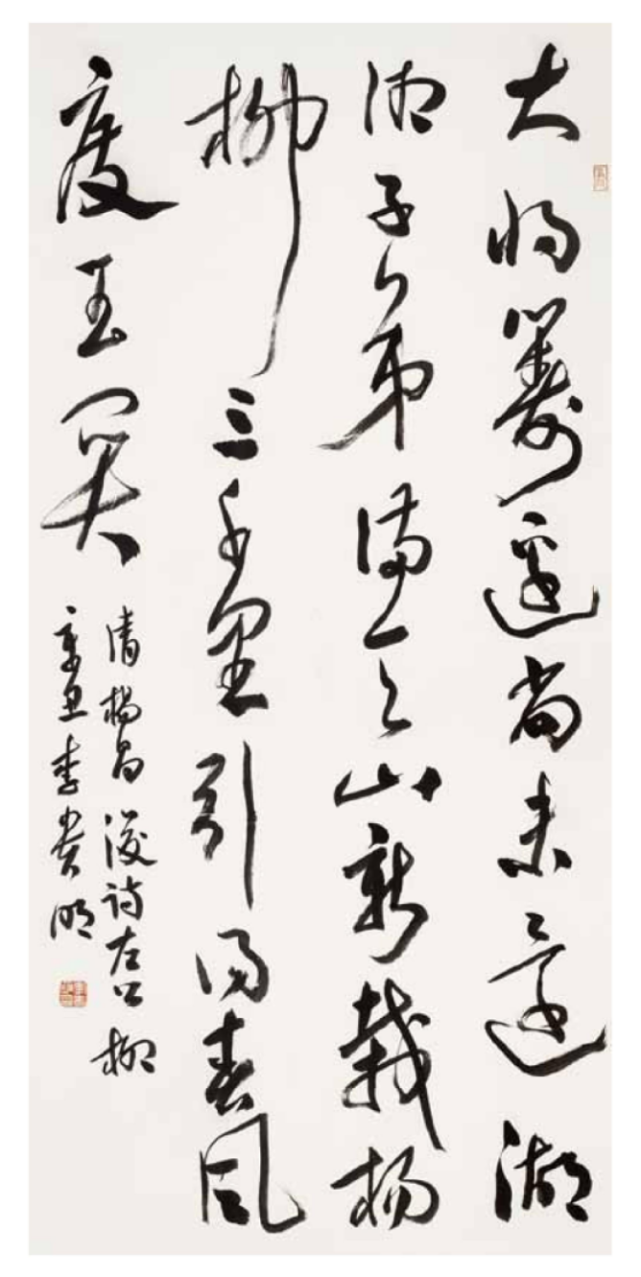 大将筹边尚未还湖
湘子弟满天山新栽杨
柳三千里引得春风
度玉关
清杨昌浚诗左公柳
辛丑李贵明